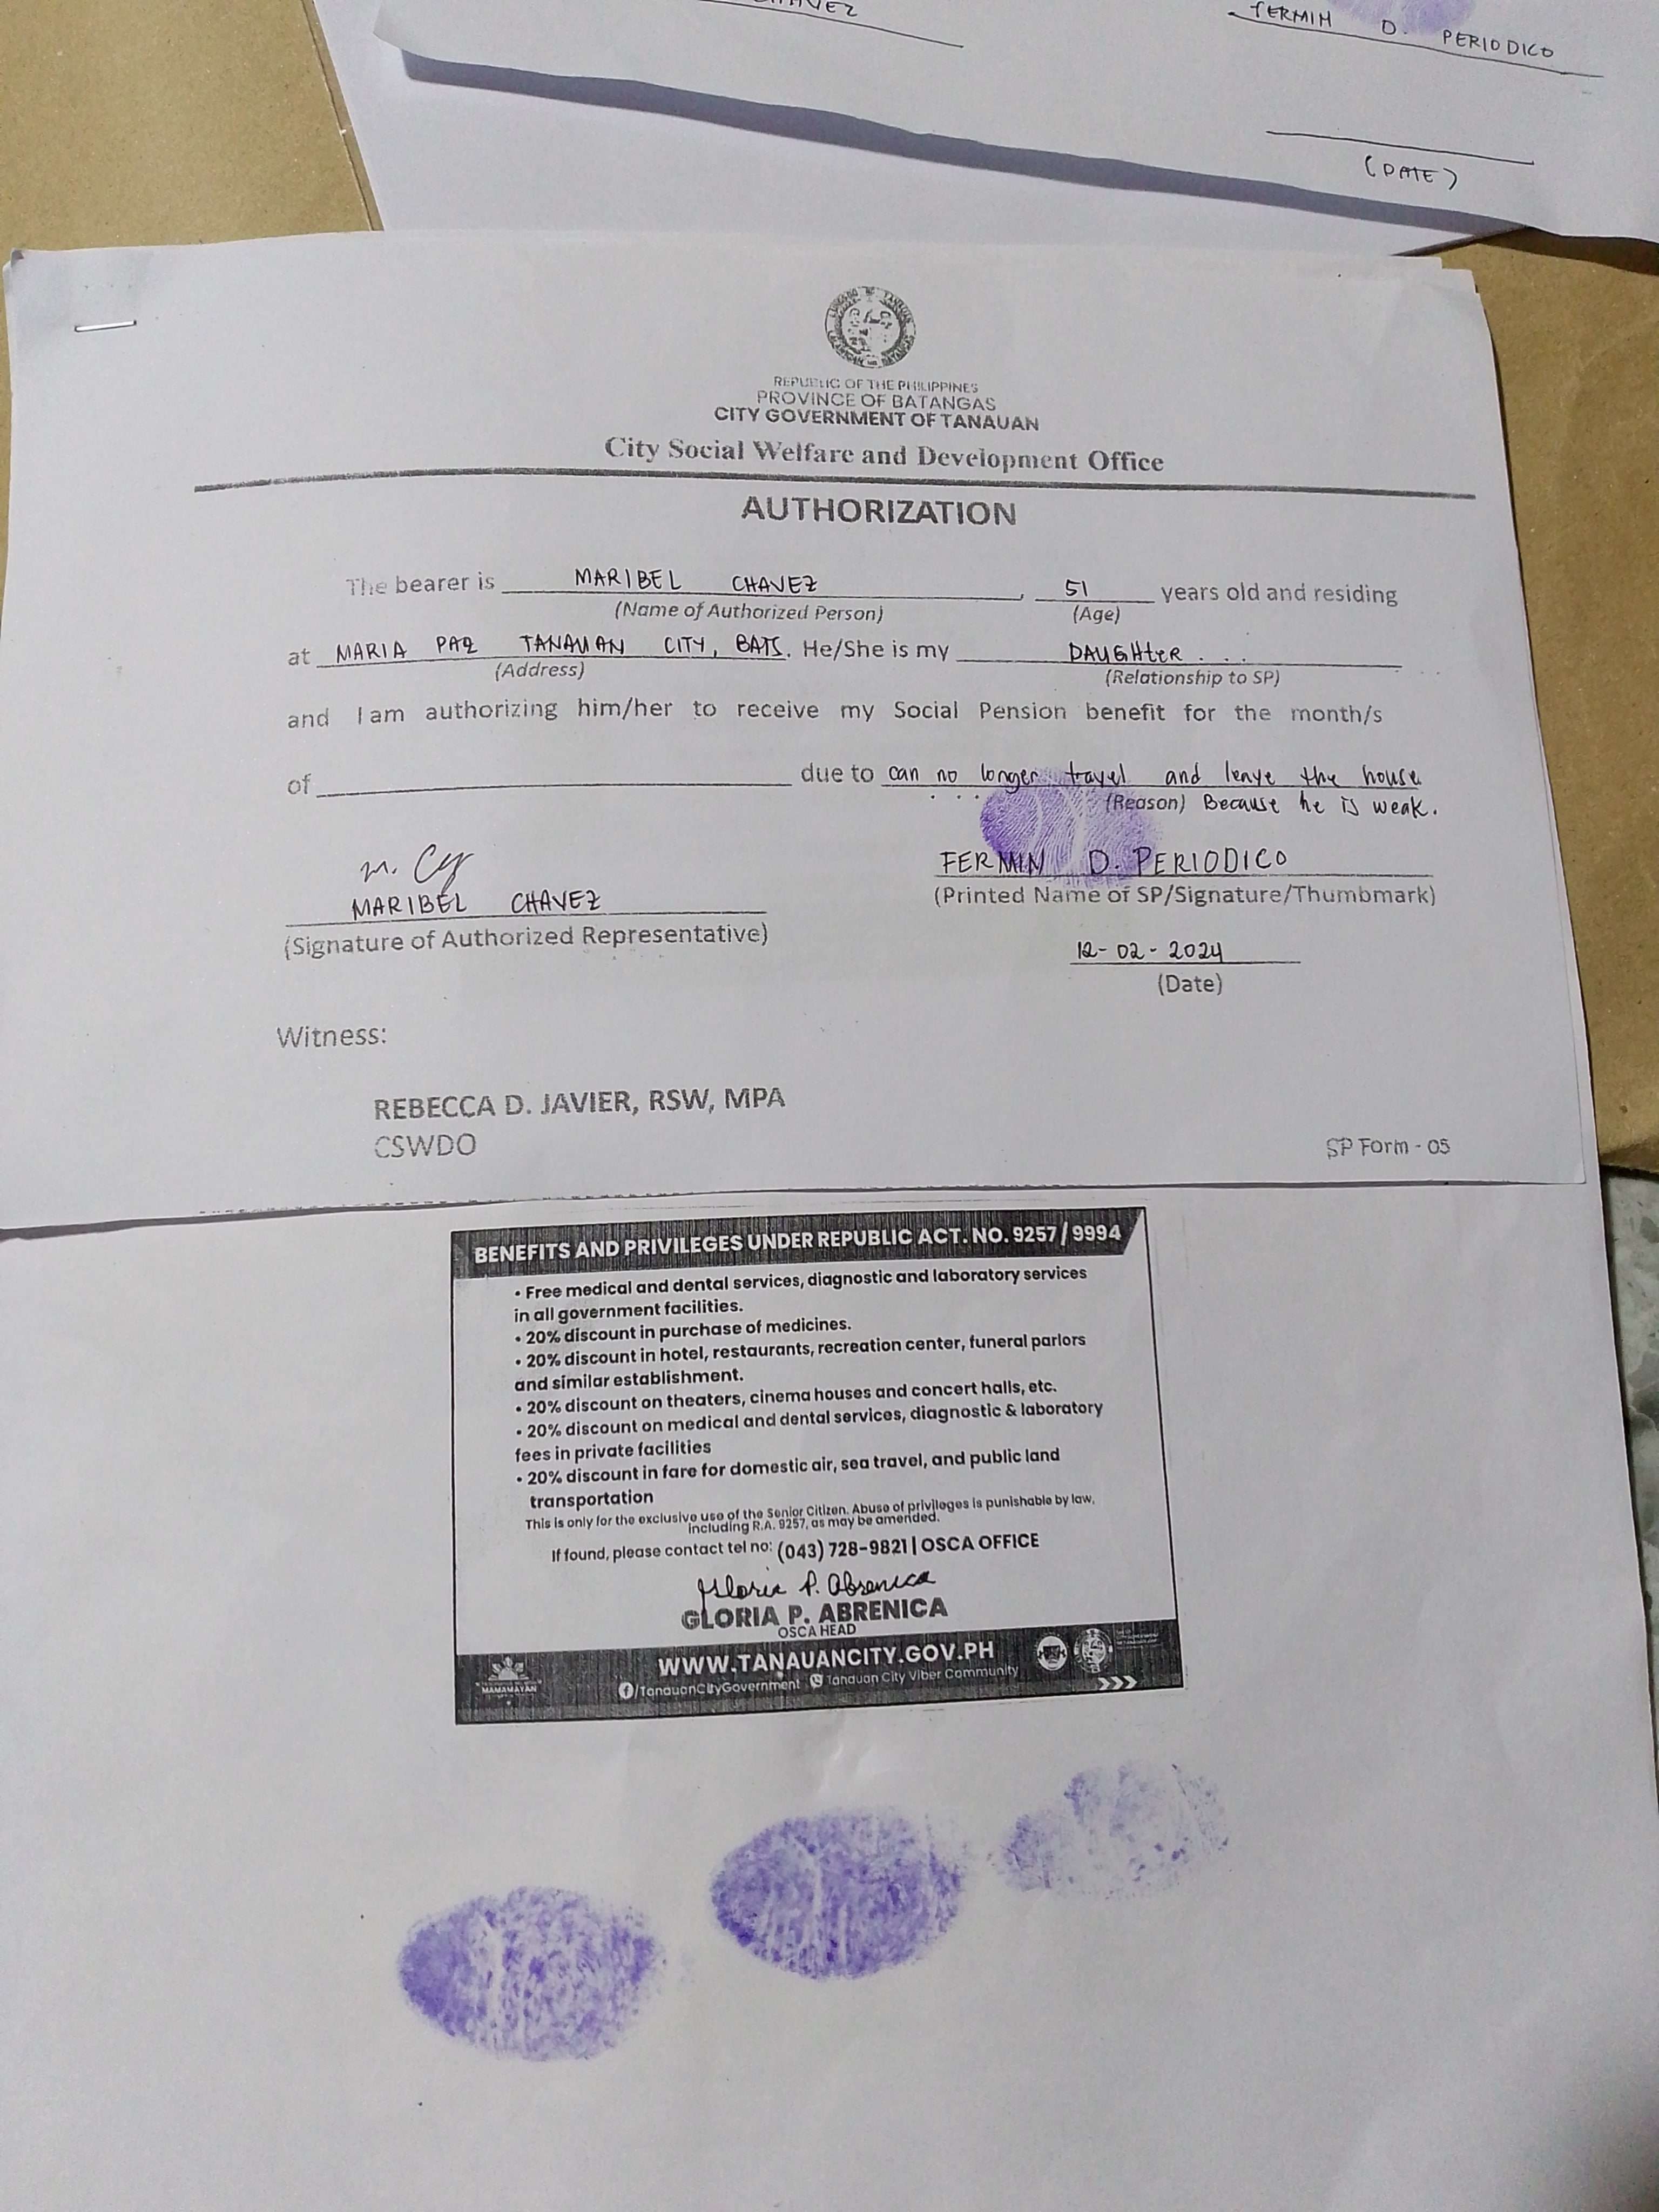 CHAVEZ
FERMIN D. PERIODICO
(DATE)
REPUBLIC OF THE PHILIPPINES
PROVINCE OF BATANGAS
CITY GOVERNMENT OF TANAUAN
City Social Welfare and Development Office
AUTHORIZATION
The bearer is MARIBEL CHAVEZ, 51 years old and residing
(Name of Authorized Person) (Age)
at MARIA PAZ TANAUAN CITY, BATS. He/She is my DAUGHTER
(Address) (Relationship to SP)
and I am authorizing him/her to receive my Social Pension benefit for the month/s
of due to can no longer travel and leave the house
(Reason) Because he is weak.
MARIBEL CHAVEZ FERMIN D. PERIODICO
(Signature of Authorized Representative) (Printed Name of SP/Signature/Thumbmark)
12-02-2024
(Date)
Witness:
REBECCA D. JAVIER, RSW, MPA
CSWDO SP Form - 05
BENEFITS AND PRIVILEGES UNDER REPUBLIC ACT. NO. 9257/9994
• Free medical and dental services, diagnostic and laboratory services
in all government facilities.
• 20% discount in purchase of medicines.
• 20% discount in hotel, restaurants, recreation center, funeral parlors
and similar establishment.
• 20% discount on theaters, cinema houses and concert halls, etc.
• 20% discount on medical and dental services, diagnostic & laboratory
fees in private facilities
• 20% discount in fare for domestic air, sea travel, and public land
transportation
This is only for the exclusive use of the Senior Citizen. Abuse of privileges is punishable by law,
including R.A. 9257, as may be amended.
If found, please contact tel no: (043) 728-9821 | OSCA OFFICE
Gloria P. Abrenica
GLORIA P. ABRENICA
OSCA HEAD
WWW.TANAUANCITY.GOV.PH
/TanauanCityGovernment Tanauan City Viber Community
MAMAMAYAN